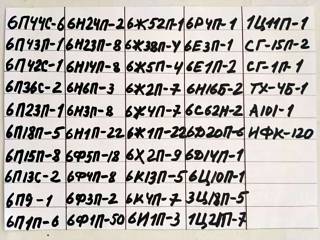 6П44С-6 6Н24П-2 6Ж52П-1 6Р4П-1 1Ц11П-1
6П43П-1 6Н23П-8 6Ж38П-4 6Е3П-1 СГ-15П-2
6П42С-1 6Н14П-8 6Ж5П-4 6Е1П-2 СГ-1П-1
6П36С-2 6Н6П-3 6Ж2П-7 6Н16Б-2 ТХ-4Б-1
6П23П-1 6Н3П-8 6Ж4П-7 6С62Н-2 А101-1
6П18П-5 6Н1П-22 6Ж1П-22 6Д20П-6 ИФК-120
6П15П-8 6Ф5П-18 6Х2П-9 6Д14П-1
6П13С-2 6Ф4П-8 6К13П-5 6Ц10П-1
6П9-1 6Ф3П-2 6К4П-7 3Ц18П-5
6П1П-6 6Ф1П-50 6И1П-3 1Ц21П-7